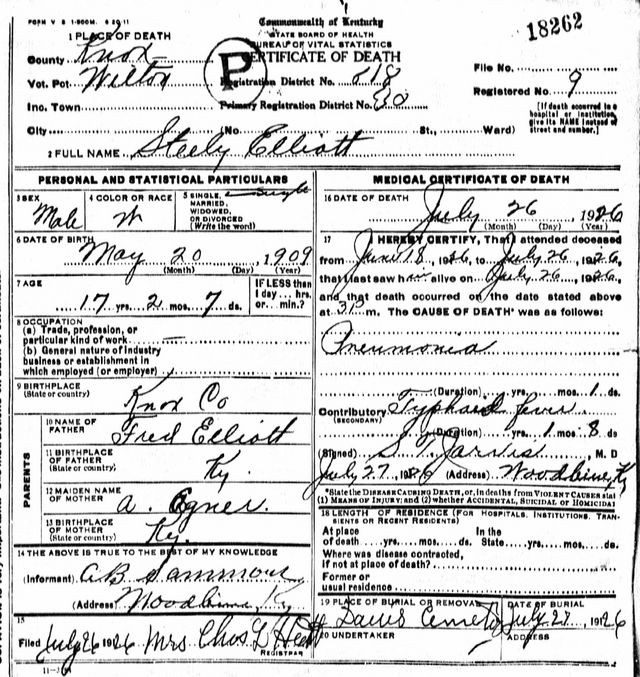 FORM V S 1-500M. 6 20 11
Commonwealth of Kentucky
STATE BOARD OF HEALTH
BUREAU OF VITAL STATISTICS
CERTIFICATE OF DEATH
18262
1 PLACE OF DEATH
County Knox
Vot. Pct. Wilton
P
Registration District No.
File No.
Inc. Town
Primary Registration District No.
Registered No. 9
[If death occurred in a hospital or institution, give its NAME instead of street and number.]
City (No. St., Ward)
2 FULL NAME Steely Elliott
PERSONAL AND STATISTICAL PARTICULARS
3 SEX Male
4 COLOR OR RACE W
5 SINGLE, MARRIED, WIDOWED, OR DIVORCED (Write the word) Single
6 DATE OF BIRTH
May 20 1909
(Month) (Day) (Year)
7 AGE
17 yrs. 2 mos. 7 ds.
IF LESS than 1 day... hrs. or... min.?
8 OCCUPATION
(a) Trade, profession, or
particular kind of work
(b) General nature of industry
business or establishment in
which employed (or employer)
9 BIRTHPLACE
(State or country) Knox Co
PARENTS
10 NAME OF FATHER Fred Elliott
11 BIRTHPLACE OF FATHER
(State or country) Ky.
12 MAIDEN NAME OF MOTHER A. Egner
13 BIRTHPLACE OF MOTHER
(State or country) Ky.
14 THE ABOVE IS TRUE TO THE BEST OF MY KNOWLEDGE
(Informant) A.B. Sammons
(Address) Woodbine, Ky
15
Filed July 26 1926 Mrs Chas L
REGISTRAR
MEDICAL CERTIFICATE OF DEATH
16 DATE OF DEATH
July 26, 1926
(Month) (Day) (Year)
17 I HEREBY CERTIFY, That I attended deceased
from June 18, 1926, to July 26, 1926,
that I last saw him alive on July 26, 1926,
and that death occurred on the date stated above
at 3 P. m. The CAUSE OF DEATH* was as follows:
Pneumonia
(Duration) yrs. mos. 1 ds.
Contributory Typhoid fever
(SECONDARY)
(Duration) yrs. 1 mos. 8 ds.
(Signed) Jarvis, M. D
July 27, 1926 (Address) Woodbine, Ky
*State the DISEASE CAUSING DEATH, or, in deaths from VIOLENT CAUSES state
(1) MEANS OF INJURY; and (2) whether ACCIDENTAL, SUICIDAL or HOMICIDAL
18 LENGTH OF RESIDENCE (FOR HOSPITALS, INSTITUTIONS, TRANSIENTS OR RECENT RESIDENTS)
At place of death yrs. mos. ds. In the State yrs. mos. ds.
Where was disease contracted,
if not at place of death?
Former or
usual residence
19 PLACE OF BURIAL OR REMOVAL
Davis Cemetery
DATE OF BURIAL
July 27, 1926
20 UNDERTAKER
ADDRESS